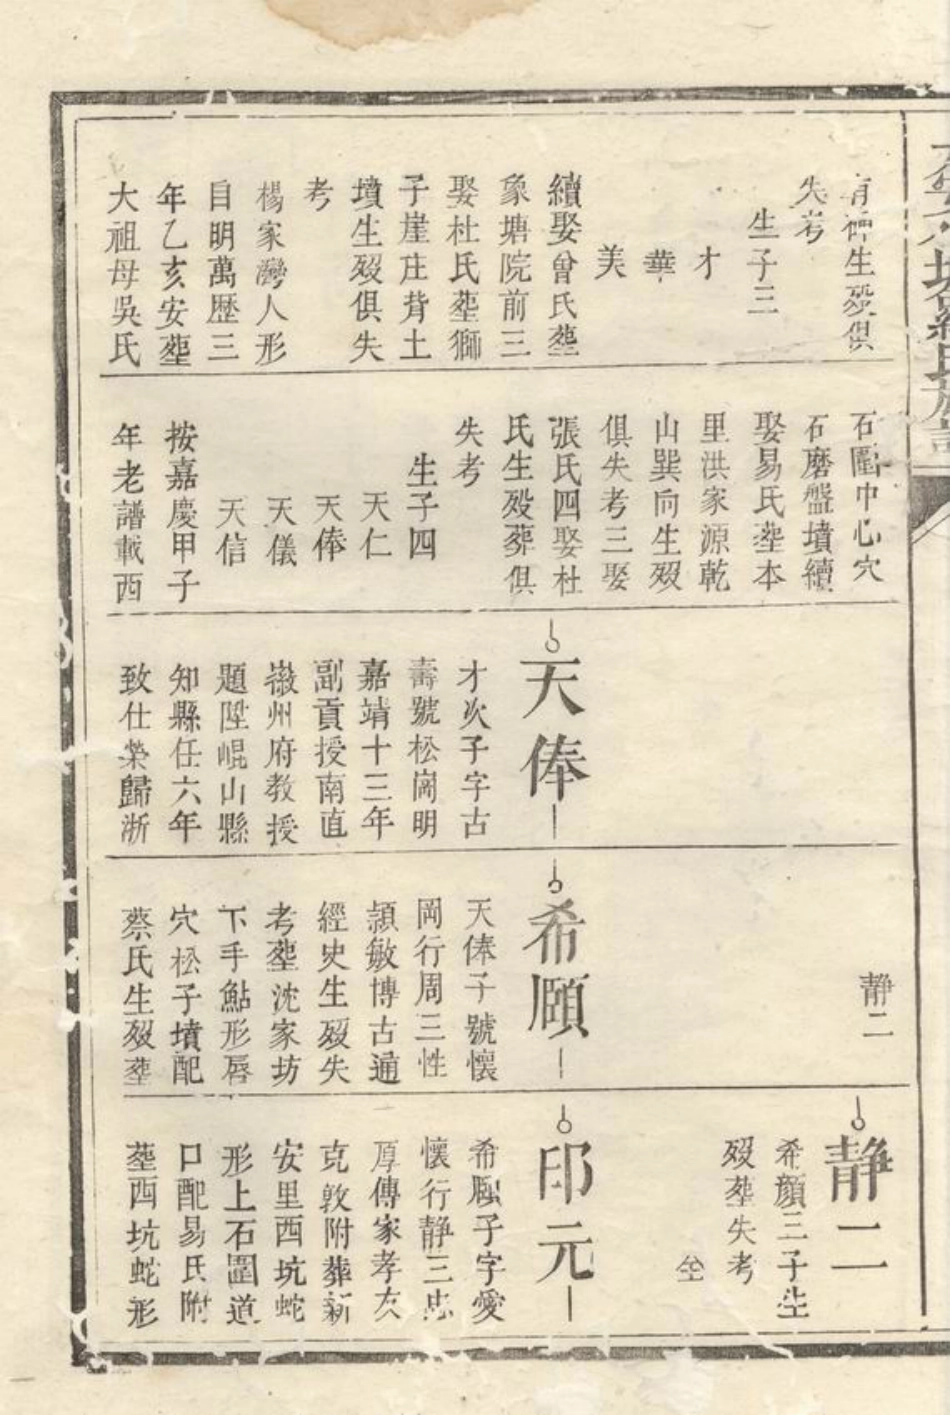 氏族譜
有神生歿俱
失考
生子三
才
華
美
續娶曾氏塟
象塘院前三
娶杜氏塟獅
子崖庄背土
墳生歿俱失
考
楊家灣人形
自明萬歷三
年乙亥安塟
大祖母吳氏
石圍中心穴
石磨盤墳續
娶易氏塟本
里洪家源乾
山巽向生歿
俱失考三娶
張氏四娶杜
氏生殁葬俱
失考
生子四
天仁
天俸
天儀
天信
按嘉慶甲子
年老譜載西
天俸
才次子字古
壽號松崗明
嘉靖十三年
副貢授南直
徽州府教授
題陞崐山縣
知縣任六年
致仕榮歸浙
靜二
希願
天俸子號懷
岡行周三性
頴敏博古通
經史生歿失
考塟沈家坊
下手鮎形唇
穴松子墳配
蔡氏生歿塟
靜二
希顏三子生
歿葬失考
印元
希願子字愛
懷行靜三忠
厚傳家孝友
克敦附葬新
安里西坑蛇
形上石圍道
口配易氏附
塟西坑蛇形